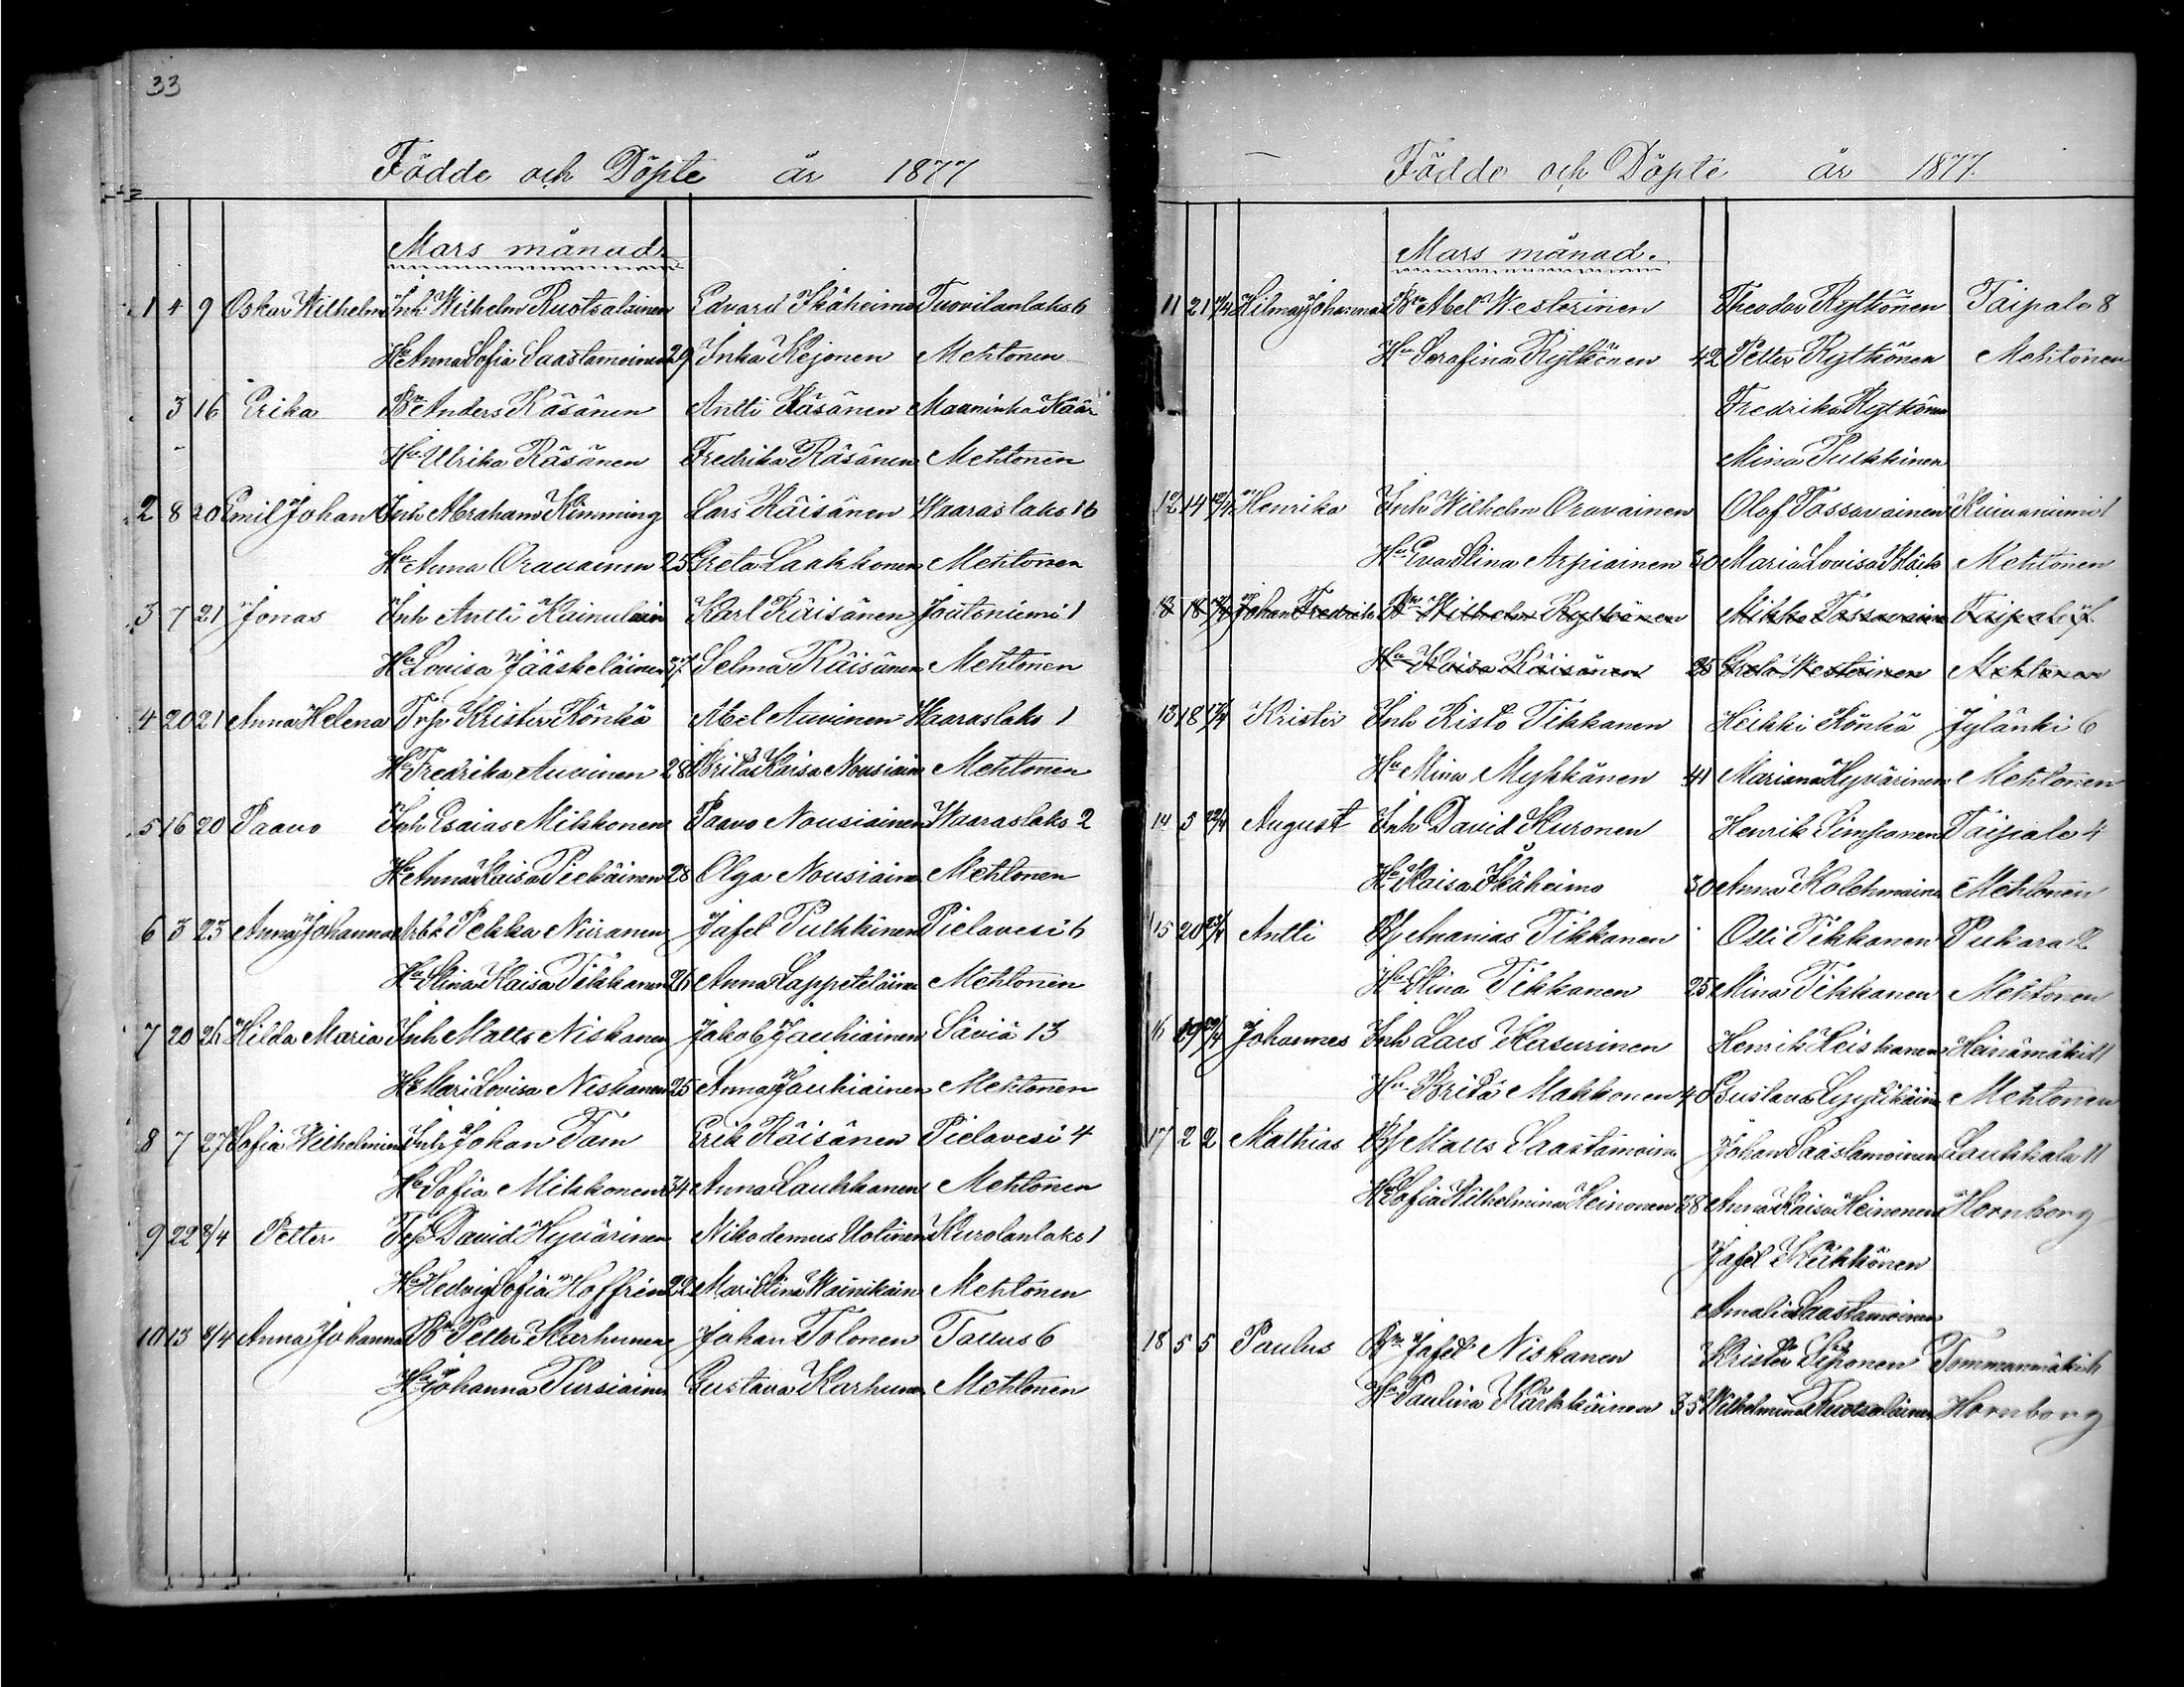 33
Födde och Döpte år 1877
Mars månad.
1 4 9 Oskar Wilhelm Inh Wilhelm Ruotsalainen Edvard Ikäheimo Tuovilanlaks 6
Hu Anna Sofia Saastamoinen 29 Inka Kejonen Mehtonen
3 16 Erika Bn Anders Räsänen Antti Räsänen Maaninka Käär
Hu Ulrika Räsänen Fredrika Räsänen Mehtonen
2 8 20 Emil Johan Inh Abraham Kimming Lars Räisänen Waaraslaks 16
Hu Anna Oravainen 25 Greta Laakkonen Mehtonen
3 7 21 Jonas Inh Antti Kainulain Karl Räisänen Joutoniemi 1
Hu Lovisa Jääskeläinen 37 Selma Räisänen Mehtonen
4 20 21 Anna Helena Trp Krister Könkä Abel Auvinen Waaraslaks 1
Hu Fredrika Auvinen 28 Brita Kaisa Nousiain Mehtonen
5 16 20 Paavo Inh Esaias Mikkonen Paavo Nousiainen Waaraslaks 2
Hu Anna Kaisa Pietäinen 28 Olga Nousiain Mehtonen
6 3 23 Anna Johanna Arbk Pekka Niiranen Jafet Pulkkinen Pielavesi 6
Hu Stina Kaisa Tikkanen 26 Anna Lappeteläinen Mehtonen
7 20 26 Hilda Maria Inh Matts Niskanen Jakob Jauhiainen Säviä 13
Hu Mari Lovisa Niskanen 25 Anna Jauhiainen Mehtonen
8 7 27 Sofia Wilhelmin Inh Johan Tam Erik Räisänen Pielavesi 4
Hu Sofia Mikkonen 34 Anna Laukkanen Mehtonen
9 22 8/4 Petter David Hyvärinen Nikodemus Uotinen Kurolanlaks 1
Hu Hedvig Sofia Hoffrén 22 Mari Stina Wainikain Mehtonen
10 13 8/4 Anna Johanna Bn Petter Karhunen Johan Tolonen Tallus 6
Hu Johanna Pursiainen Gustava Karhunen Mehtonen
Födde och Döpte år 1877.
Mars månad.
11 21 Hilma Johanna Bn Abel Westerinen Theodor Rytkönen Taipale 8
Hu Serafina Rytkönen 42 Petter Rytkönen Mehtonen
Fredrika Rytkönen
Mina Pulkkinen
12 14 Henrika Inh Wilhelm Oravainen Olof Tossavainen Kuivaniemi 1
Hu Eva Stina Arpiainen 30 Maria Lovisa Mehtonen
18 Johan Fredrik Bn Wilhelm Rytkönen Mikko Tossavain Taipale
Hu Kaisa Räisänen 25 Greta Westerinen Mehtonen
13 18 Krister Inh Risto Tikkanen Heikki Könkä Jylänki 6
Hu Mina Mykkänen 41 Mariana Hyvärinen Mehtonen
14 5 August Inh David Kuronen Henrik Simpanen Taipale 4
Hu Kaisa Ikäheimo 30 Anna Kolehmainen Mehtonen
15 20 Antti Ananias Tikkanen Olli Tikkanen Pukara 2
Hu Stina Tikkanen 25 Mina Tikkanen Mehtonen
16 Johannes Inh Lars Kasurinen Henrik Heiskanen Heinämäki 11
Hu Brita Makkonen 40 Gustava Lyytikäinen Mehtonen
17 2 2 Mathias Matts Saastamoinen Johan Saastamoinen Laukkala 11
Hu Sofia Wilhelmina Heinonen 38 Anna Kaisa Heinonen Hornborg
Jafet
Amalia Saastamoinen
18 5 5 Paulus Bn Jafet Niskanen Krister Siponen Tommanmäki 6
Hu Paulina Kärkkäinen 35 Wilhelmina Ruotsalainen Hornborg